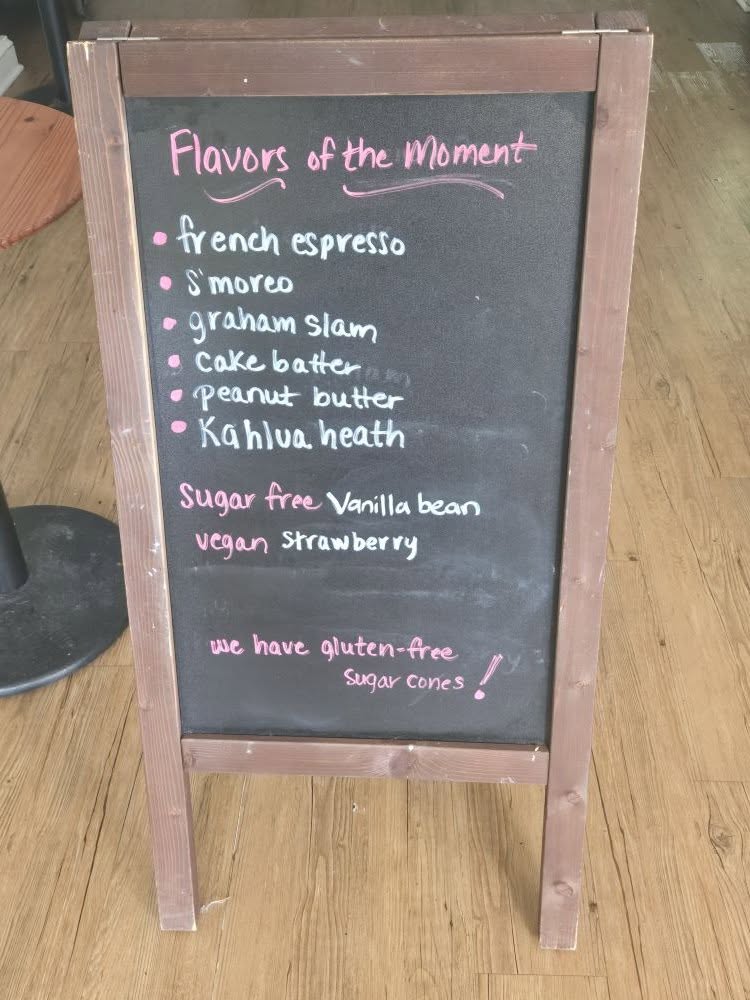 Flavors of the Moment
• french espresso
• S'moreo
• graham slam
• cake batter
• peanut butter
• Kahlua heath
Sugar free Vanilla bean
vegan strawberry
we have gluten-free
sugar cones!